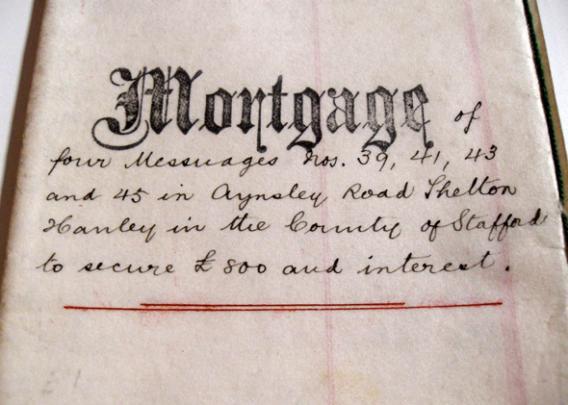 Mortgage of
four Messuages Nos. 39, 41, 43
and 45 in Aynsley Road Shelton
Hanley in the County of Stafford
to secure £800 and interest.